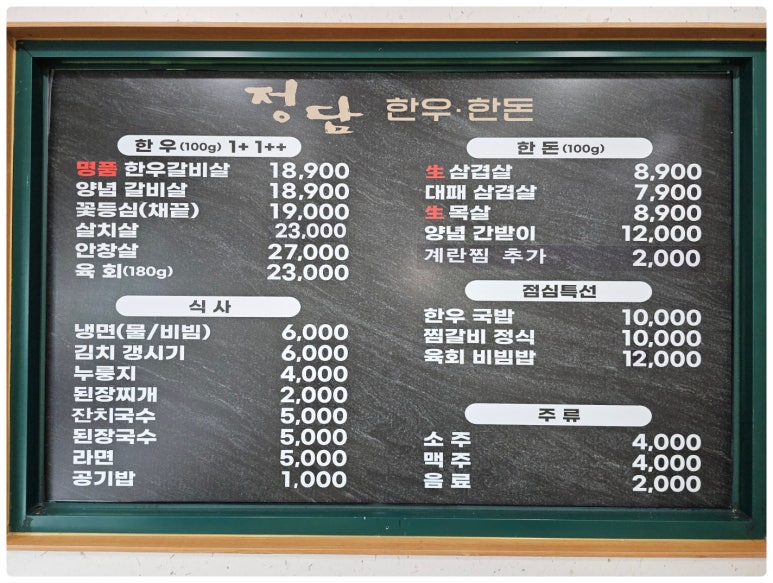 정담 한우·한돈
한 우 (100g) 1+ 1++
명품 한우갈비살 18,900
양념 갈비살 18,900
꽃등심(채끝) 19,000
살치살 23,000
안창살 27,000
육 회(180g) 23,000
식 사
냉면(물/비빔) 6,000
김치 갱시기 6,000
누룽지 4,000
된장찌개 2,000
잔치국수 5,000
된장국수 5,000
라면 5,000
공기밥 1,000
한 돈 (100g)
生 삼겹살 8,900
대패 삼겹살 7,900
生 목살 8,900
양념 간받이 12,000
계란찜 추가 2,000
점심특선
한우 국밥 10,000
찜갈비 정식 10,000
육회 비빔밥 12,000
주 류
소 주 4,000
맥 주 4,000
음 료 2,000